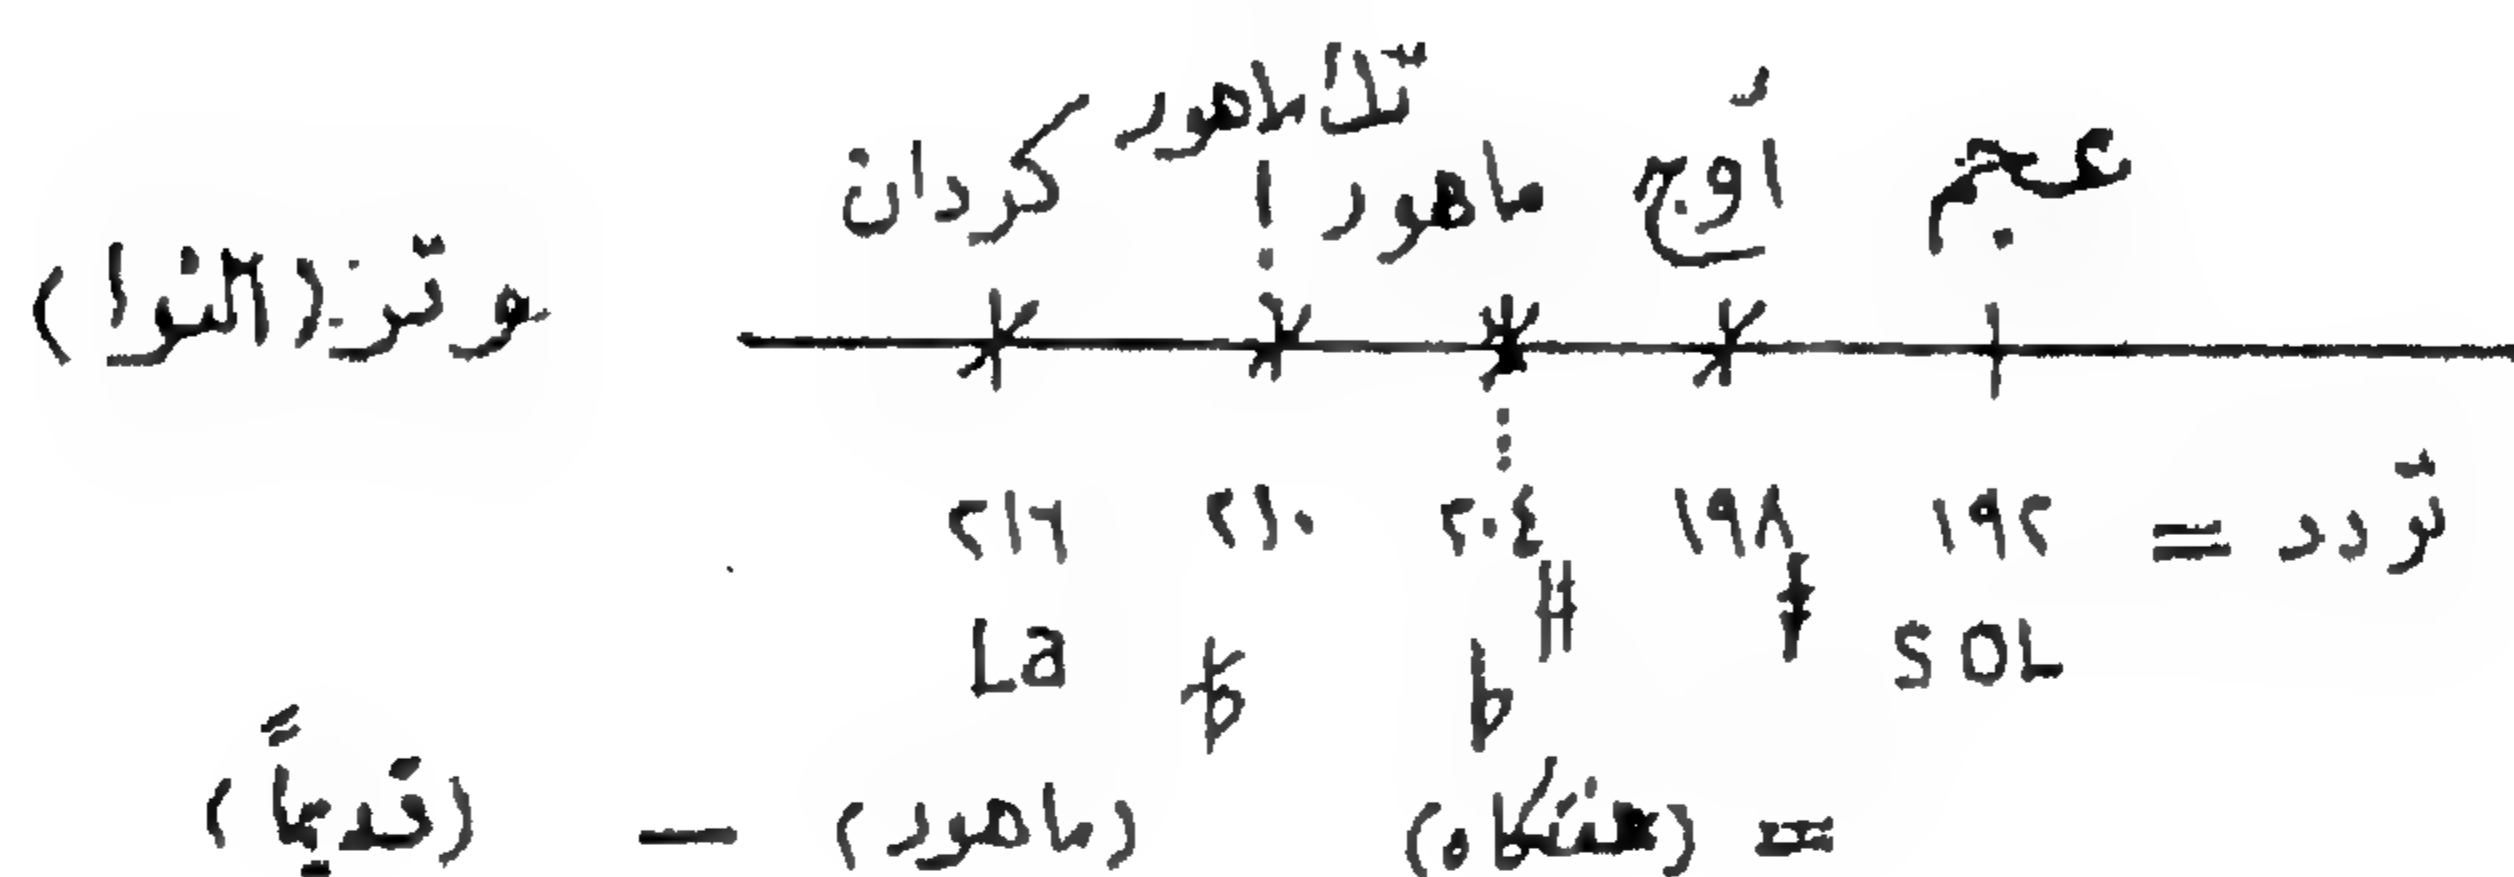 تك ماهور
عجم اوج ماهور كردان
وتر (النوا)
تردد = ١٩٢ ١٩٨ ٢٠٤ ٢١٠ ٢١٦
SOL ‡ # b La
= (هفتكاه) (ماهور) — (قديماً)